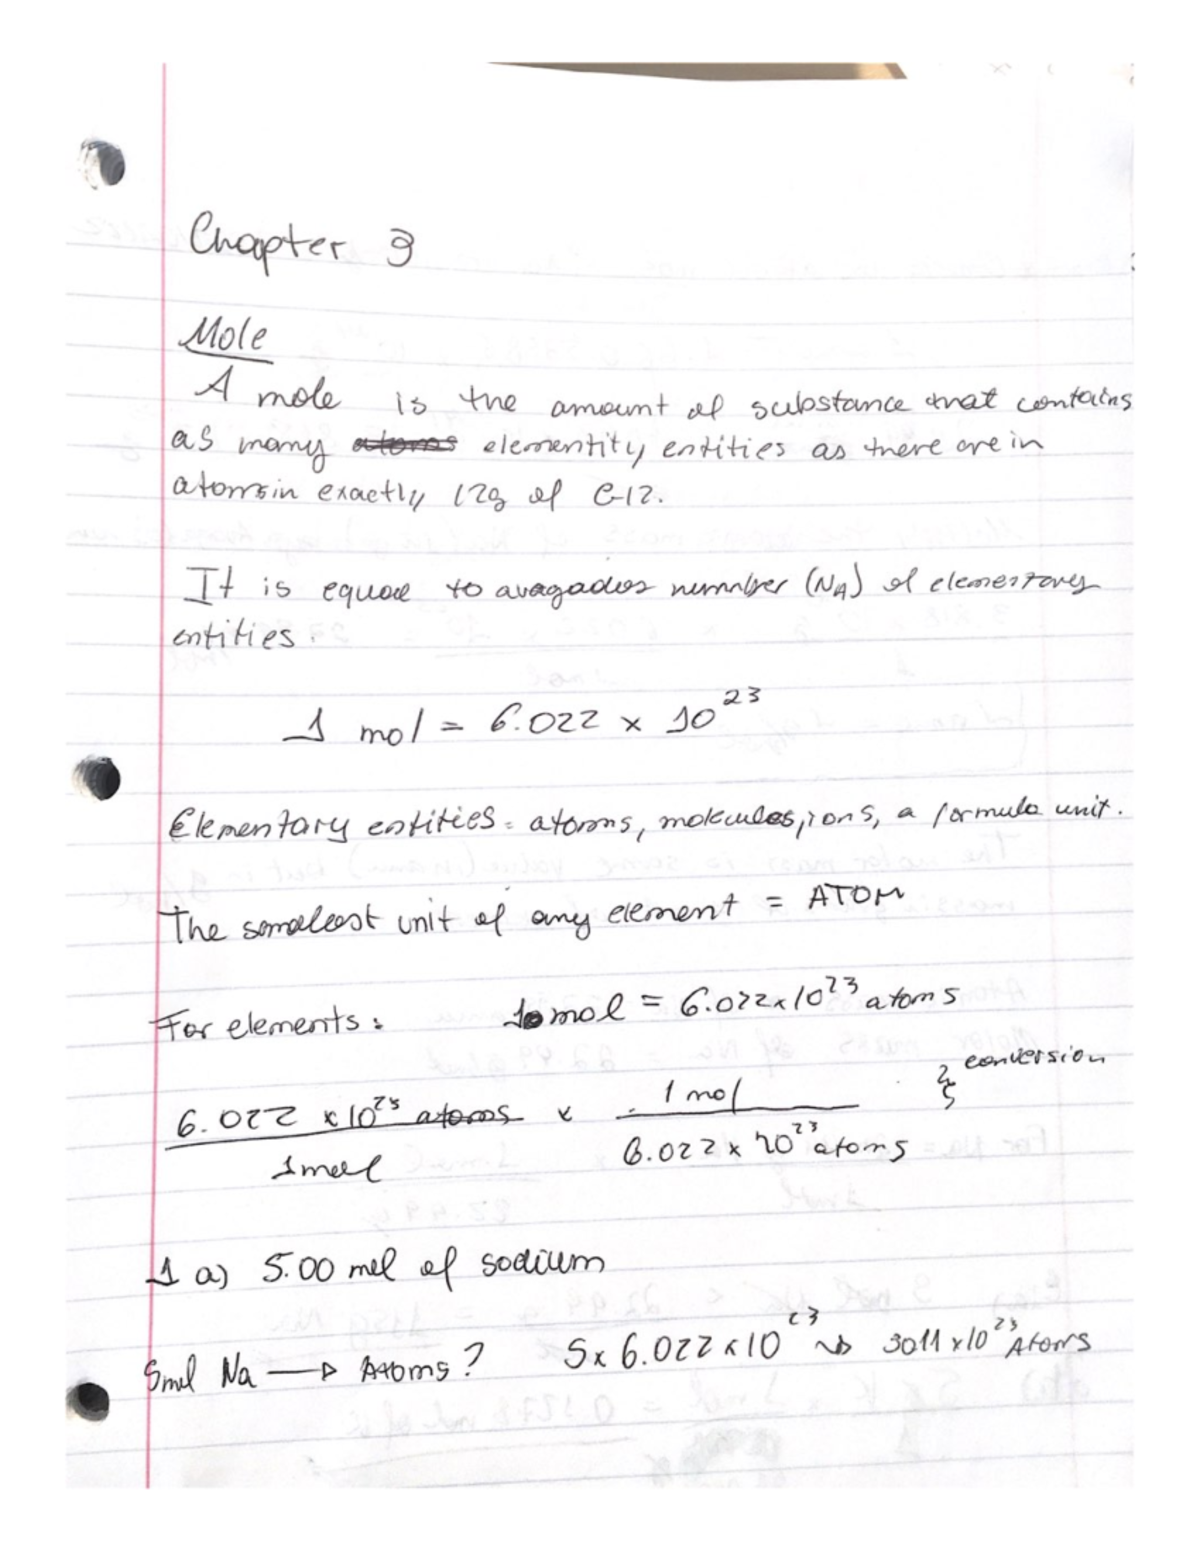 Chapter 3
Mole
A mole is the amount of substance that contains
as many atoms elementity entities as there are in
atoms in exactly 12g of C-12.
It is equal to avagados number (NA) of elementary
entities.
1 mol = 6.022 x 10^23
Elementary entities = atoms, molecules, ions, a formula unit.
The smallest unit of any element = ATOM
For elements: 1 mol = 6.022 x 10^23 atoms
conversion
6.022 x 10^23 atoms x 1 mol
1 mol 6.022 x 10^23 atoms
1 a) 5.00 mol of sodium
5mol Na → Atoms? 5 x 6.022 x 10^23 → 3011 x 10^23 Atoms